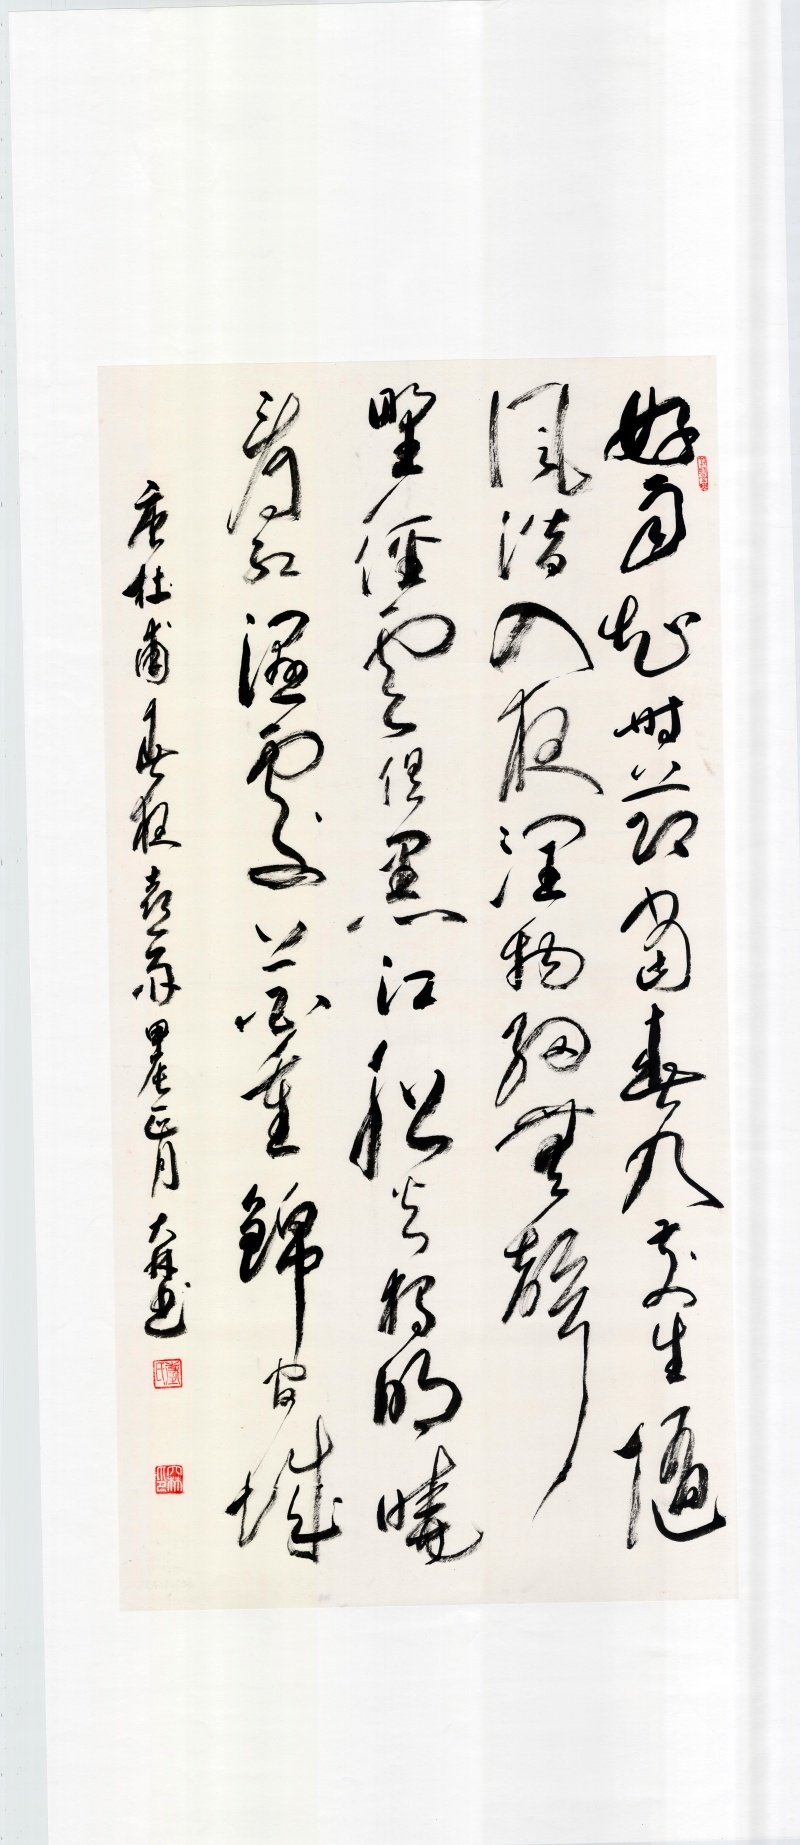 好雨知時節當春乃發生隨
風潛入夜潤物細無聲
野徑雲俱黑江船火獨明曉
看紅濕處花重錦官城
唐杜甫春夜喜雨甲辰正月大林書